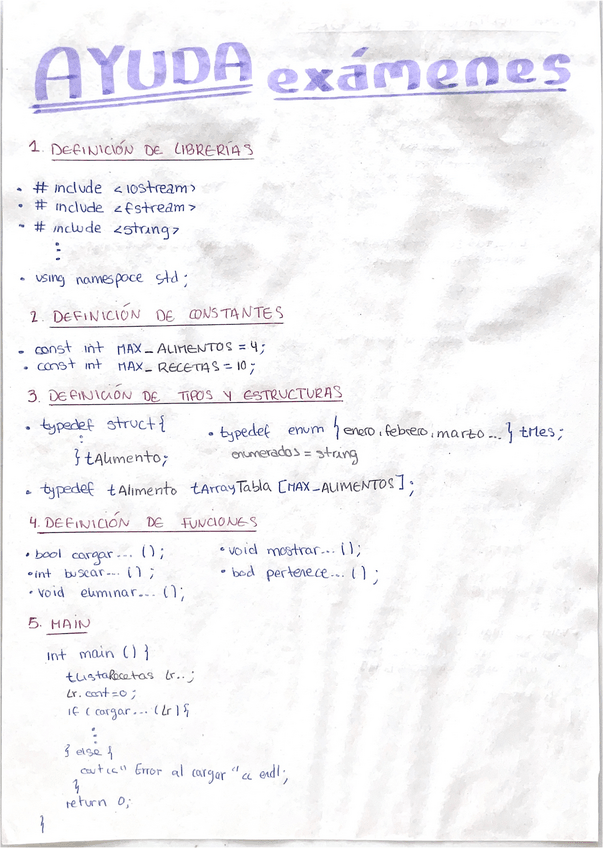 AYUDA exámenes
1. DEFINICIÓN DE LIBRERÍAS
• # include <iostream>
• # include <fstream>
• # include <string>
⋮
• using namespace std;
2. DEFINICIÓN DE CONSTANTES
• const int MAX_ALIMENTOS = 4;
• const int MAX_RECETAS = 10;
3. DEFINICIÓN DE TIPOS Y ESTRUCTURAS
• typedef struct{
⋮
} tAlimento;
• typedef enum {enero, febrero, marzo...} tMes;
enumerados = string
• typedef tAlimento tArrayTabla [MAX_ALIMENTOS];
4. DEFINICIÓN DE FUNCIONES
• bool cargar... ();
• void mostrar... ();
• int buscar... ();
• bool pertenece... ();
• void eliminar... ();
5. MAIN
int main () {
tListaRecetas lr..;
lr.cont=0;
if (cargar... (lr){
⋮
} else {
cout<<" Error al cargar "<< endl;
}
return 0;
}